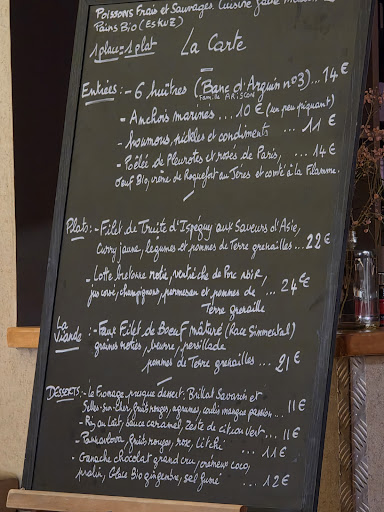 Poissons Frais et Sauvages. Cuisine faite Maison
Pains Bio (ESKUZ)
1 place = 1 plat La Carte
Entrées :- 6 huîtres (Banc d'Arguin n°3)... 14 €
Famille
- Anchois marinés .... 10 € (un peu piquant)
- houmous, pickles et condiments ... 11 €
- Poêlée de Pleurotes et rosés de Paris, .... 14 €
Oeuf Bio, crème de Roquefort au Jerès et comté à la Flamme.
Plats :- Filet de Truite d'Ispéguy aux Saveurs d'Asie,
Curry jaune, légumes et pommes de Terre grenailles... 22 €
- Lotte bretonne rotie, ventrèche de Porc noir,
jus corsé, champignons, parmesan et pommes de ... 24 €
Terre grenaille
La Viande :- Faux Filet de Boeuf mâturé (Race Simmental)
graines rôties, beurre, persillade
pommes de Terre grenailles ... 21 €
DESSERTS :- Le Fromage, presque dessert: Brillat Savarin et
Selles-sur-cher, fruits rouges, agrumes, coulis mangue passion ... 11 €
- Riz au Lait, sauce caramel, zeste de citron vert... 11 €
- Pavlova, fruits rouges, rose, litchi ... 11 €
- Ganache chocolat grand cru, crémeux coco,
pralin, Glace Bio gingembre, sel fumé .... 12 €